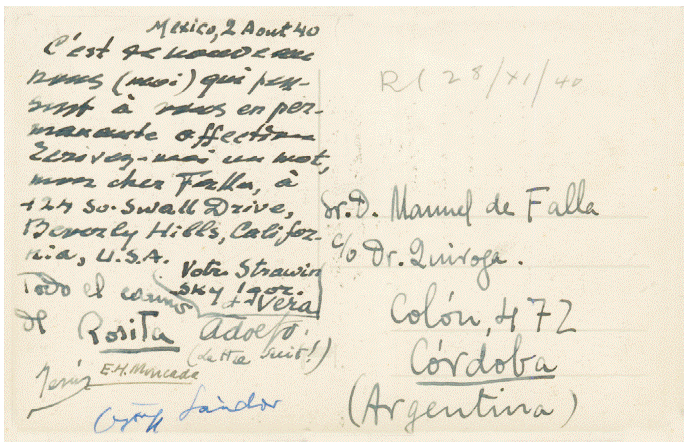 Mexico, 2 Aout 40
C'est de nouveau
nous (moi) qui pen-
sent à vous en per-
manante affection
Ecrivez-moi un mot,
mon cher Falla, à
124 So. Swall Drive,
Beverly Hills, Califor-
nia, U.S.A.
Votre Strawin
sky Igor.
+ Vera
Todo el cariño
de Rosita Adolfo.
(lettre suit!)
Jesús E.H. Moncada
Sándor
R/ 28/XI/40
Sr. D. Manuel de Falla
c/o Dr. Quiroga.
Colón, 472
Córdoba
(Argentina)